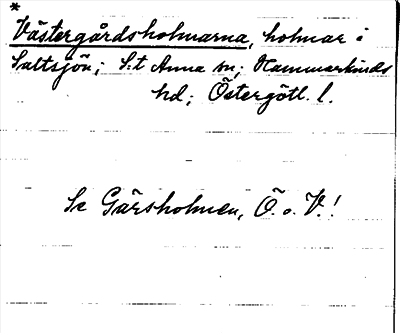 *
Västergårdsholmarna, holmar i
Saltsjön; S:t Anna sn; Hammarkinds
hd; Östergötl. l.
Se Gårsholmen, Ö. o. V.!